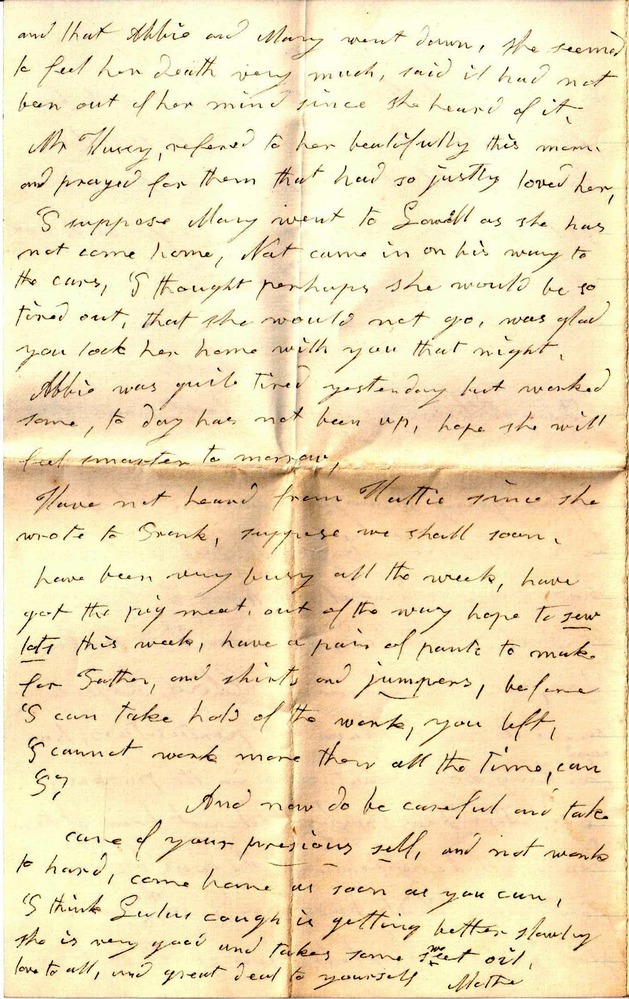 and that Abbie and Mary went down, she seemed
to feel her death very much, said it had not
been out of her mind since she heard of it.
Mr Husey, refered to her beatifully this morn.
and prayed for them that had so justly loved her,
I suppose Mary went to Lowell as she has
not come home, Nat came in on his way to
the cars, I thought perhaps she would be so
tired out, that she would not go, was glad
you took her home with you that night.
Abbie was quite tired yesterday but worked
some, to day has not been up, hope she will
feel smarter to morrow,
Have not heard from Hattie since she
wrote to Frank, suppose we shall soon.
have been very busy all the week, have
got the pig meat, out of the way hope to sew
lots this week, have a pair of pants to make
for Father, and shirts and jumpers, before
I can take hold of the work, you left,
I cannot work more then all the time, can
I?
And now do be careful and take
care of your presious self, and not work
to hard, come home as soon as you can,
I think Lulus cough is getting better slowly
she is very good and takes some sweet oil,
love to all, and great deal to yourself Mother